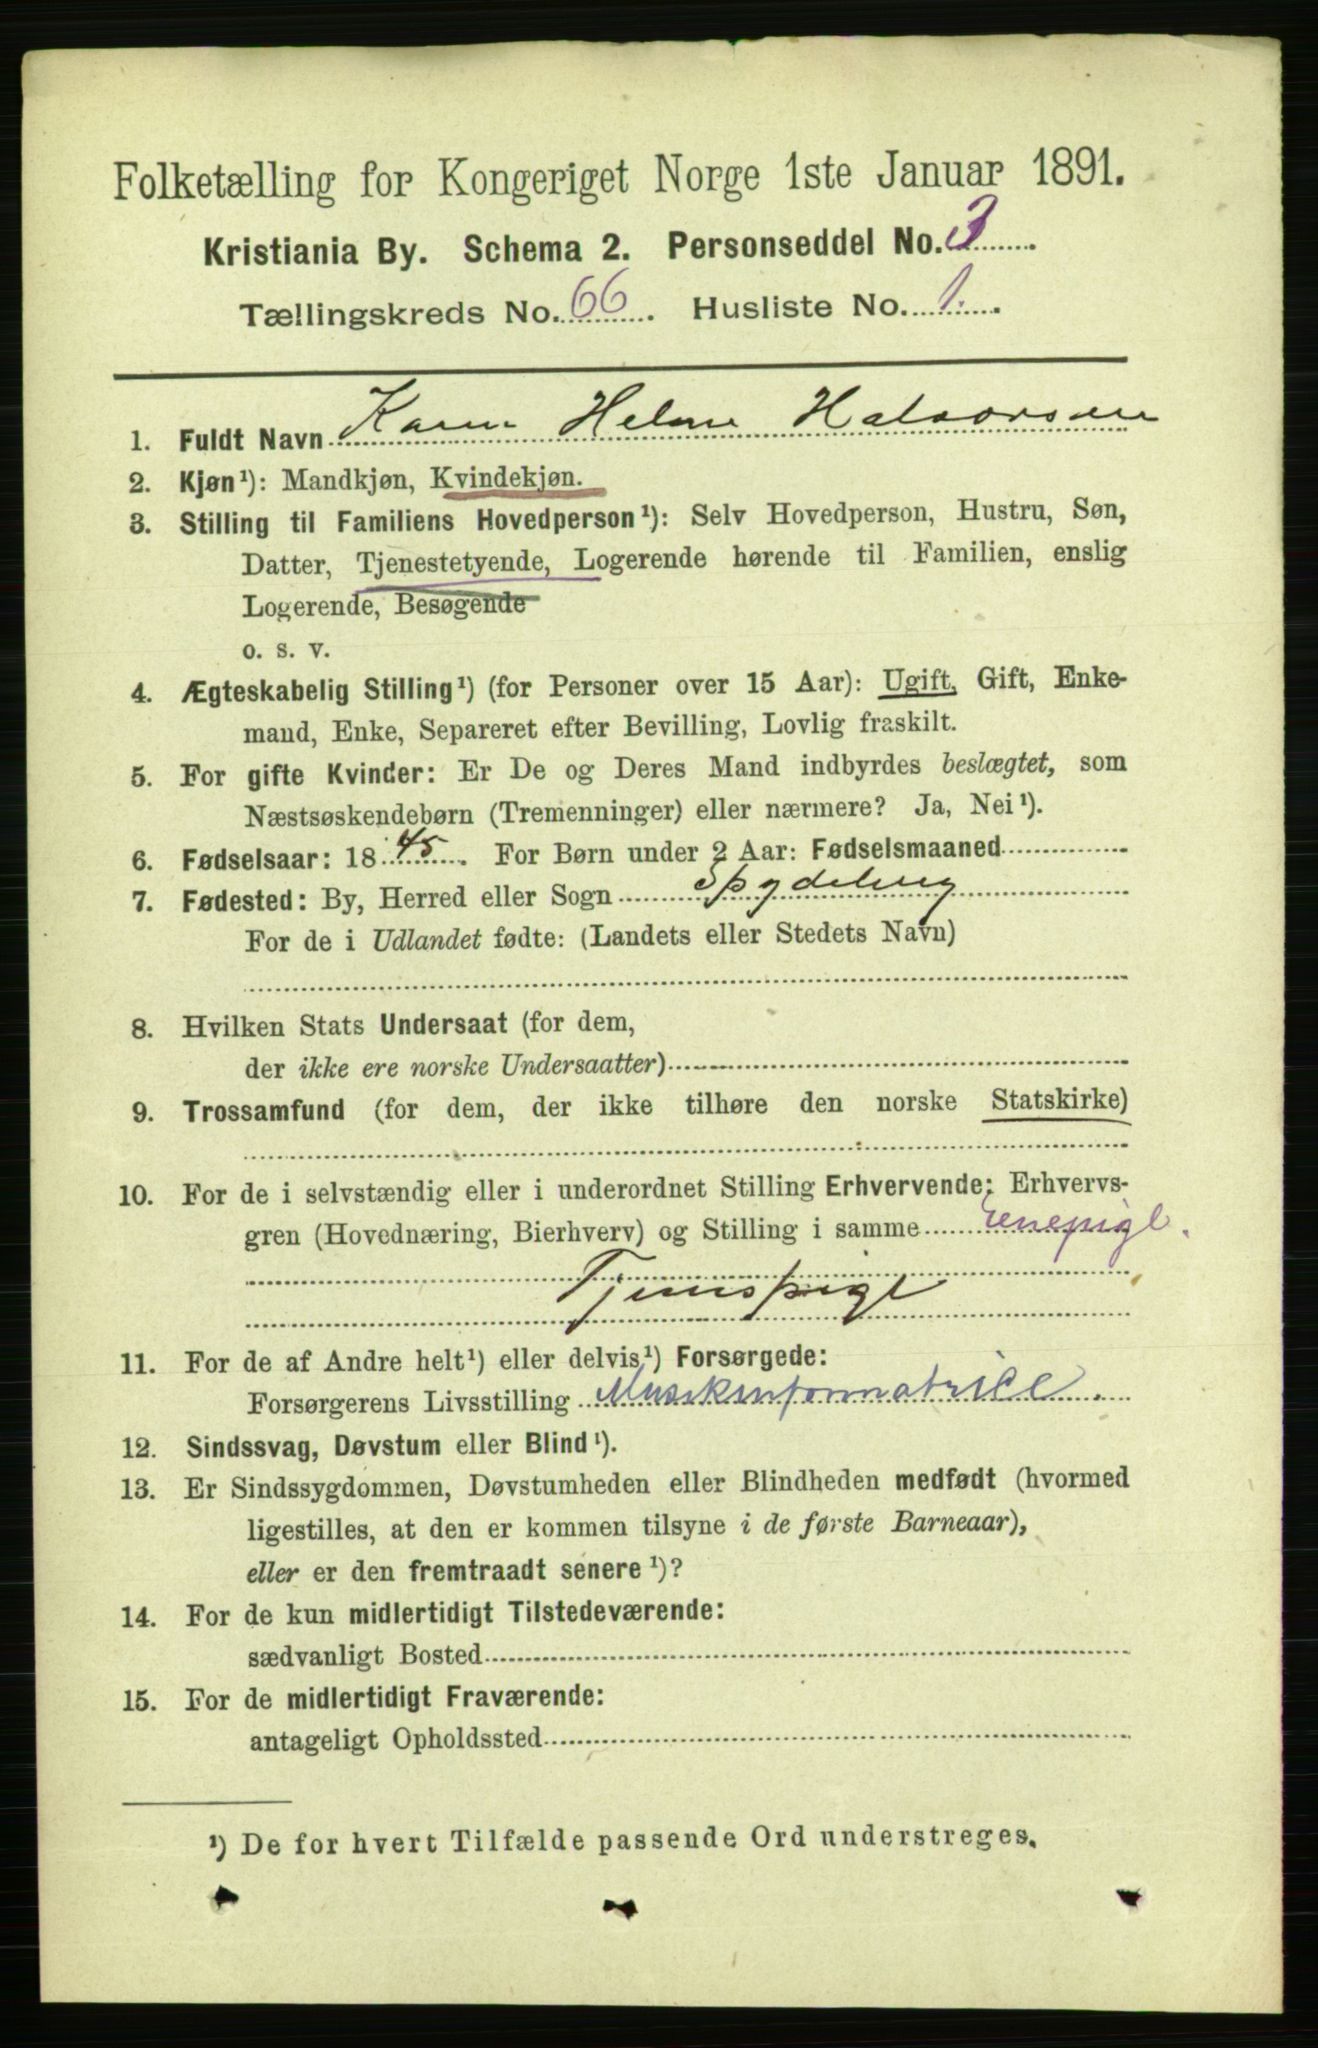 Folketælling for Kongeriget Norge 1ste Januar 1891.
Kristiania By. Schema 2. Personseddel No. 3
Tællingskreds No. 66. Husliste No. 1.
1. Fuldt Navn Karen Helene Halvorsen
2. Kjøn¹): Mandkjøn, Kvindekjøn.
3. Stilling til Familiens Hovedperson¹): Selv Hovedperson, Hustru, Søn,
Datter, Tjenestetyende, Logerende hørende til Familien, enslig
Logerende, Besøgende
o. s. v.
4. Ægteskabelig Stilling¹) (for Personer over 15 Aar): Ugift, Gift, Enke-
mand, Enke, Separeret efter Bevilling, Lovlig fraskilt.
5. For gifte Kvinder: Er De og Deres Mand indbyrdes beslægtet, som
Næstsøskendebørn (Tremenninger) eller nærmere? Ja, Nei¹).
6. Fødselsaar: 1845. For Børn under 2 Aar: Fødselsmaaned
7. Fødested: By, Herred eller Sogn Spydeberg
For de i Udlandet fødte: (Landets eller Stedets Navn)
8. Hvilken Stats Undersaat (for dem,
der ikke ere norske Undersaatter)
9. Trossamfund (for dem, der ikke tilhøre den norske Statskirke)
10. For de i selvstændig eller i underordnet Stilling Erhvervende: Erhvervs-
gren (Hovednæring, Bierhverv) og Stilling i samme Enepige.
Tjenspige
11. For de af Andre helt¹) eller delvis¹) Forsørgede:
Forsørgerens Livsstilling Musikinformatrice.
12. Sindssvag, Døvstum eller Blind¹).
13. Er Sindssygdommen, Døvstumheden eller Blindheden medfødt (hvormed
ligestilles, at den er kommen tilsyne i de første Barneaar),
eller er den fremtraadt senere¹)?
14. For de kun midlertidigt Tilstedeværende:
sædvanligt Bosted
15. For de midlertidigt Fraværende:
antageligt Opholdssted
¹) De for hvert Tilfælde passende Ord understreges.